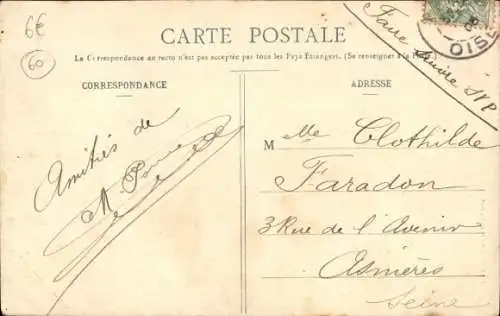 6€
60
CARTE POSTALE
La Correspondance au recto n'est pas acceptée par tous les Pays Étrangers. (Se renseigner à la
Faire suivre SVP
OISE
CORRESPONDANCE
ADRESSE
Amitiés de
M
Mlle Clothilde
Faradon
3 Rue de l'Avenir
Asnières
Seine